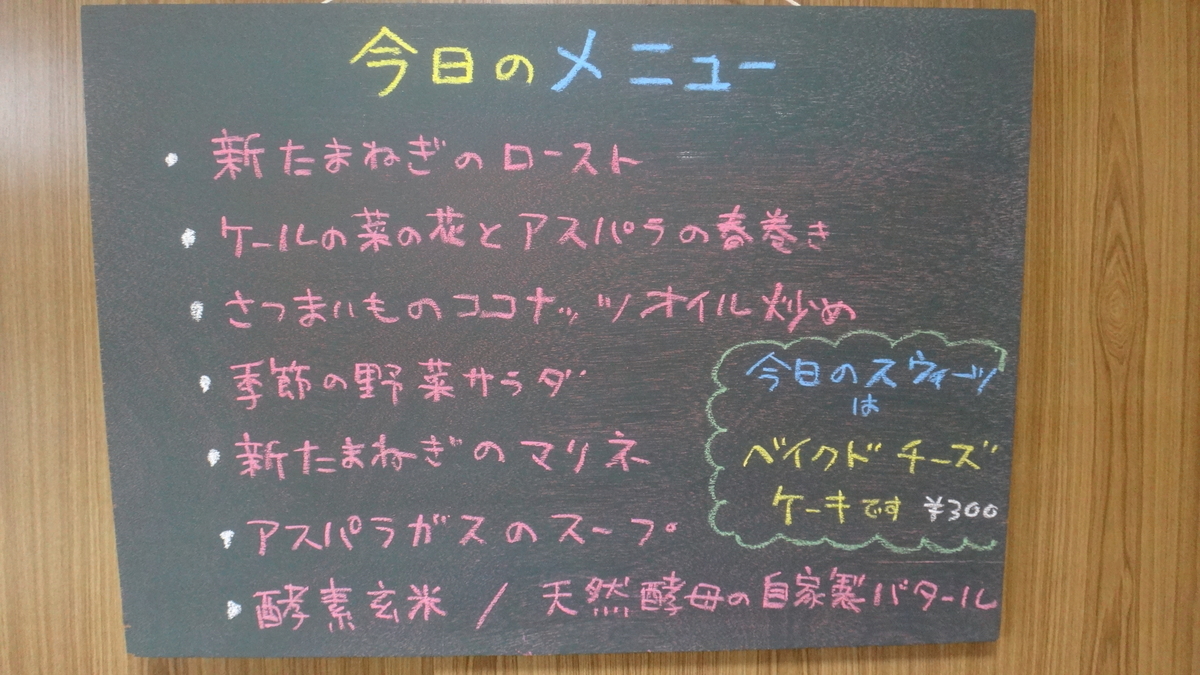 今日のメニュー
・新たまねぎのロースト
・ケールの菜の花とアスパラの春巻き
・さつまいものココナッツオイル炒め
・季節の野菜サラダ
・新たまねぎのマリネ
・アスパラガスのスープ
・酵素玄米 / 天然酵母の自家製バタール
今日のスウィーツ
は
ベイクドチーズ
ケーキです ¥300